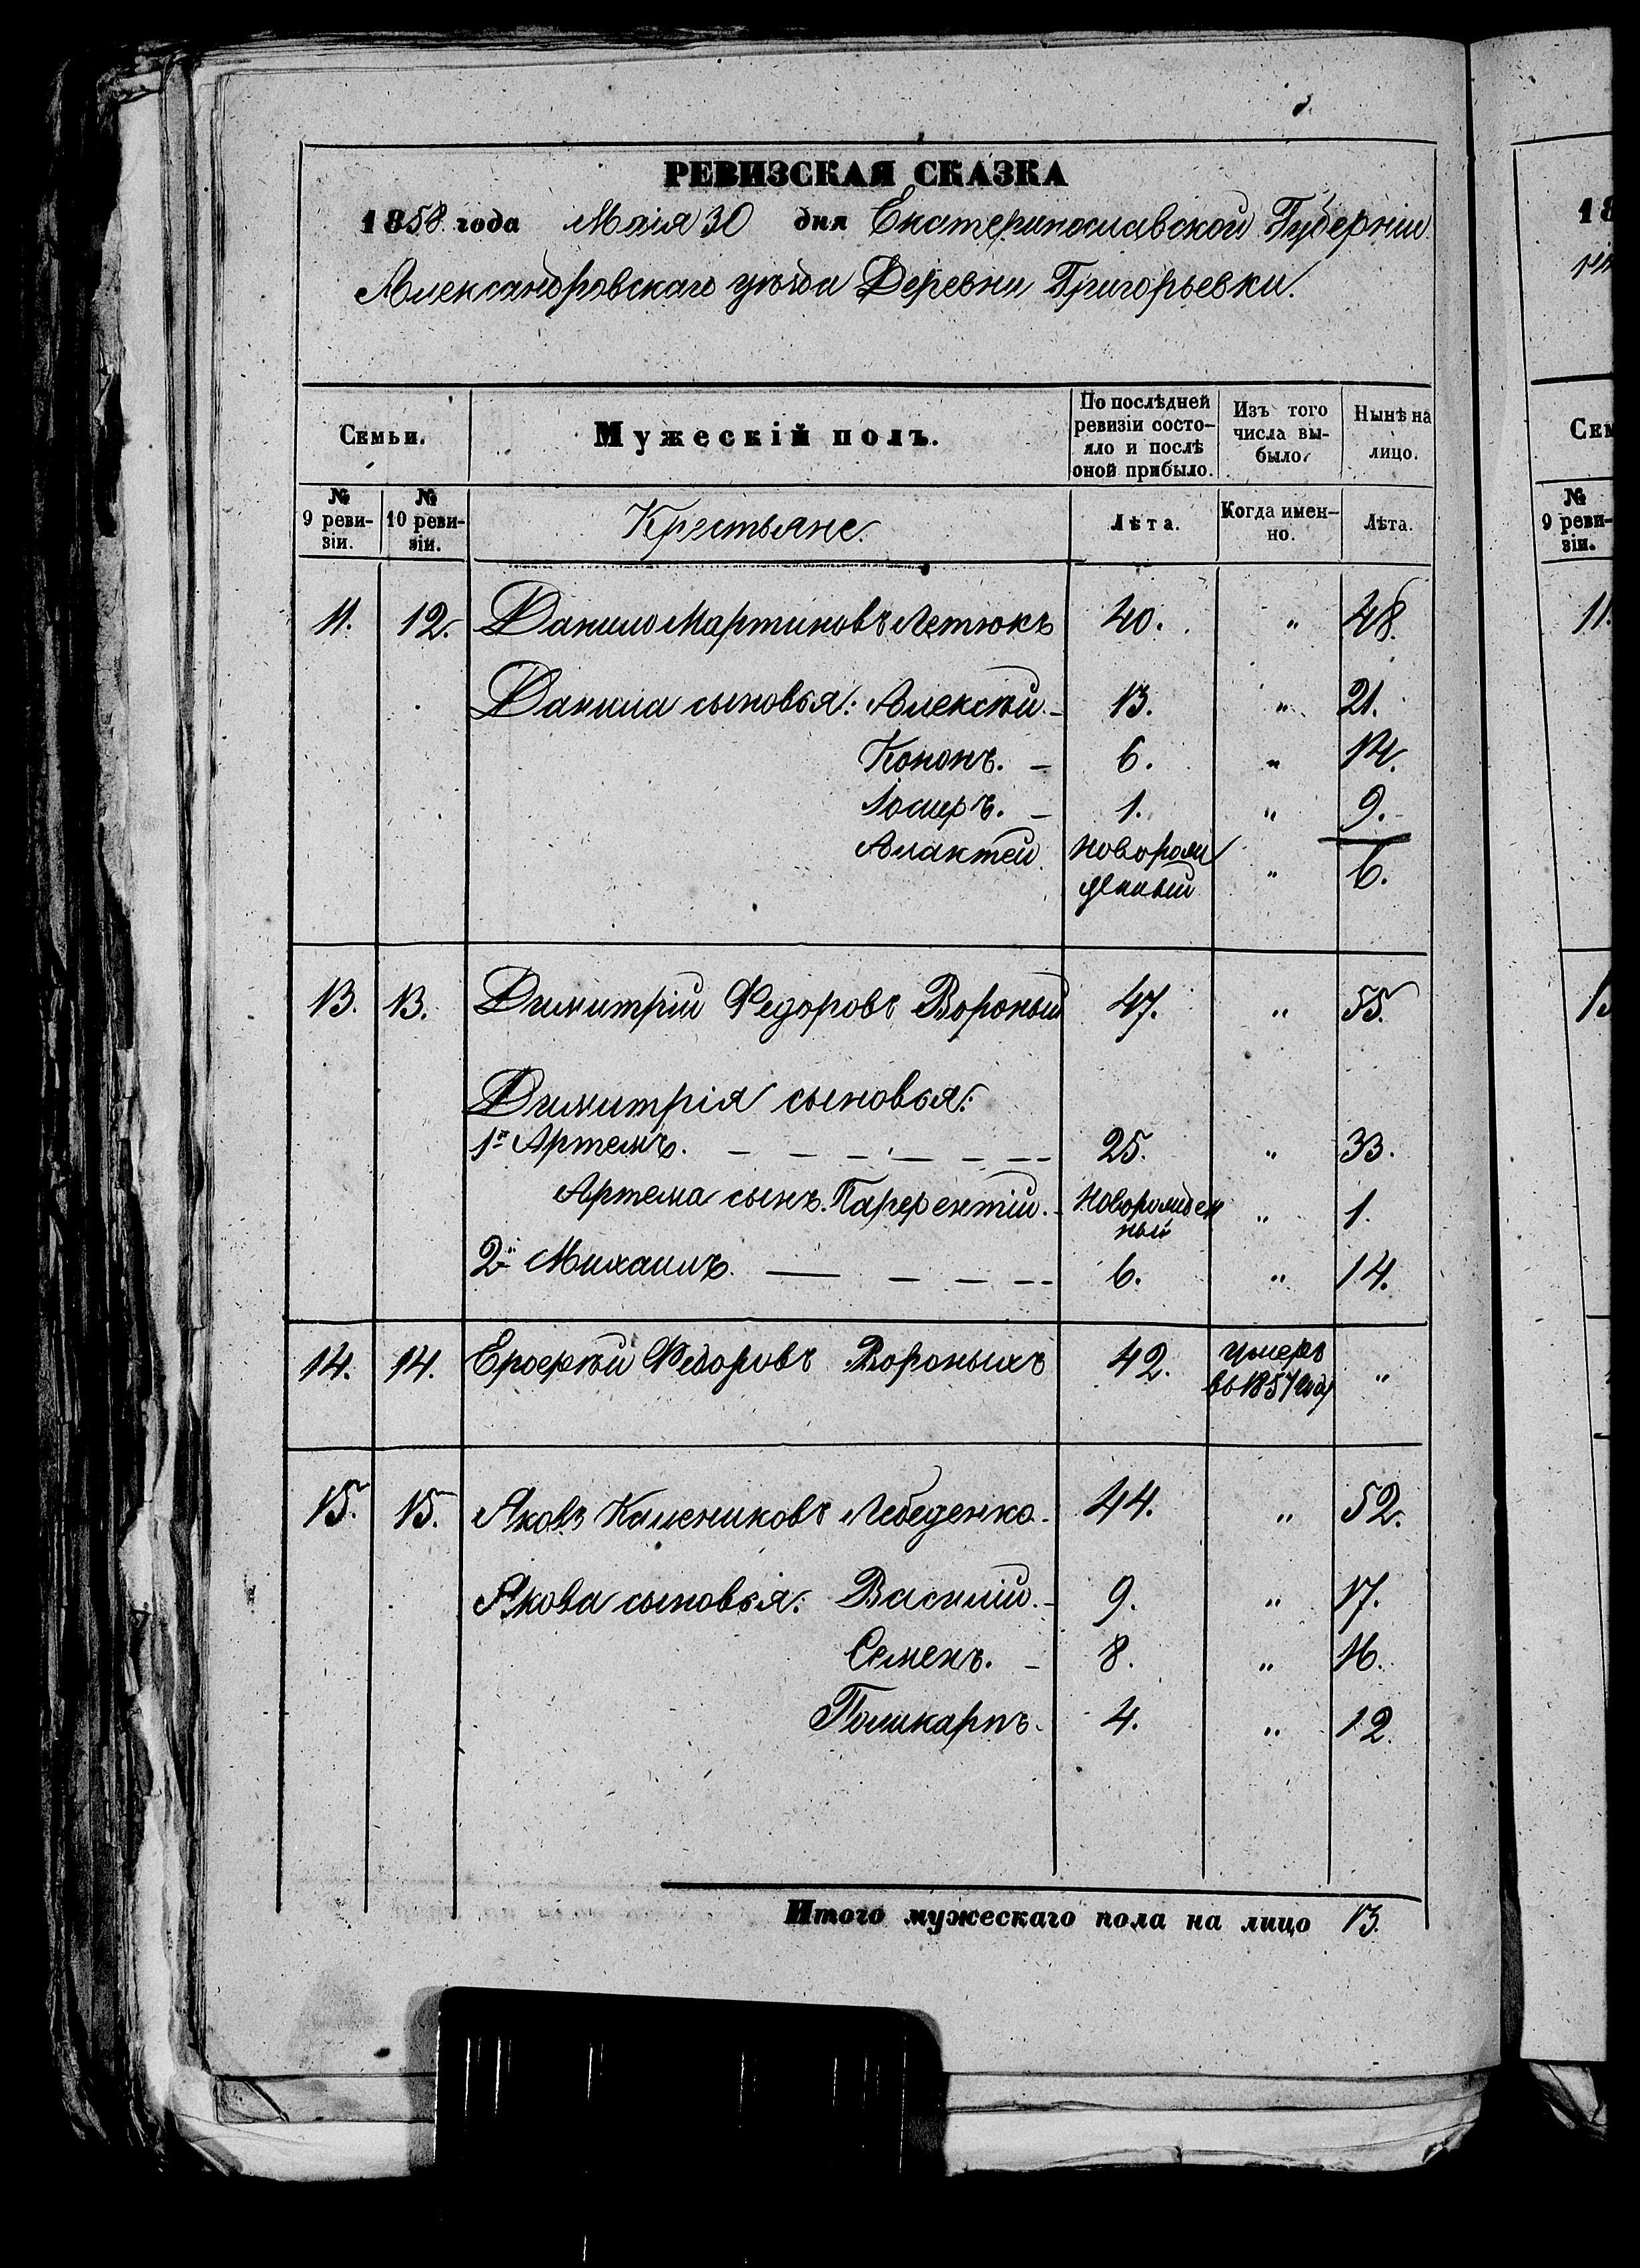 РЕВИЗСКАЯ СКАЗКА
1858 года Маія 30 дня Екатеринославской Губерніи
Александровскаго уѣзда Деревни Григорьевки.
Семьи. Мужескій полъ. По послѣдней ревизіи состо-яло и послѣ оной прибыло. Изъ того числа вы-было. Нынѣ на лицо.
№ 9 реви-зіи. № 10 реви-зіи. Крестьяне. Лѣта. Когда имен-но. Лѣта.
11. 12. Данило Мартиновъ Летюкъ 40. " 48.
Данила сыновья: Алексѣй. 13. " 21.
Кононъ. 6. " 14.
1. " 9.
Алактей новорож
денный " 6.
13. 13. Димитрій Федоровъ Вороный 47. " 55.
Димитрія сыновья:
1й Артемъ. 25. " 33.
Артема сынъ. Парфентій. Новорожден
ный " 1.
2й Михаилъ. 6. " 14.
14. 14. Ерофѣй Федоровъ Вороныхъ 42. умеръ
въ 1857 году "
15. 15. Яковъ Калениковъ Лебеденко. 44. " 52.
Якова сыновья: Василій. 9. " 17.
Семенъ. 8. " 16.
Поликарпъ. 4. " 12.
Итого мужескаго пола на лицо 13.
18
Сем
№ 9 реви-зіи.
11.